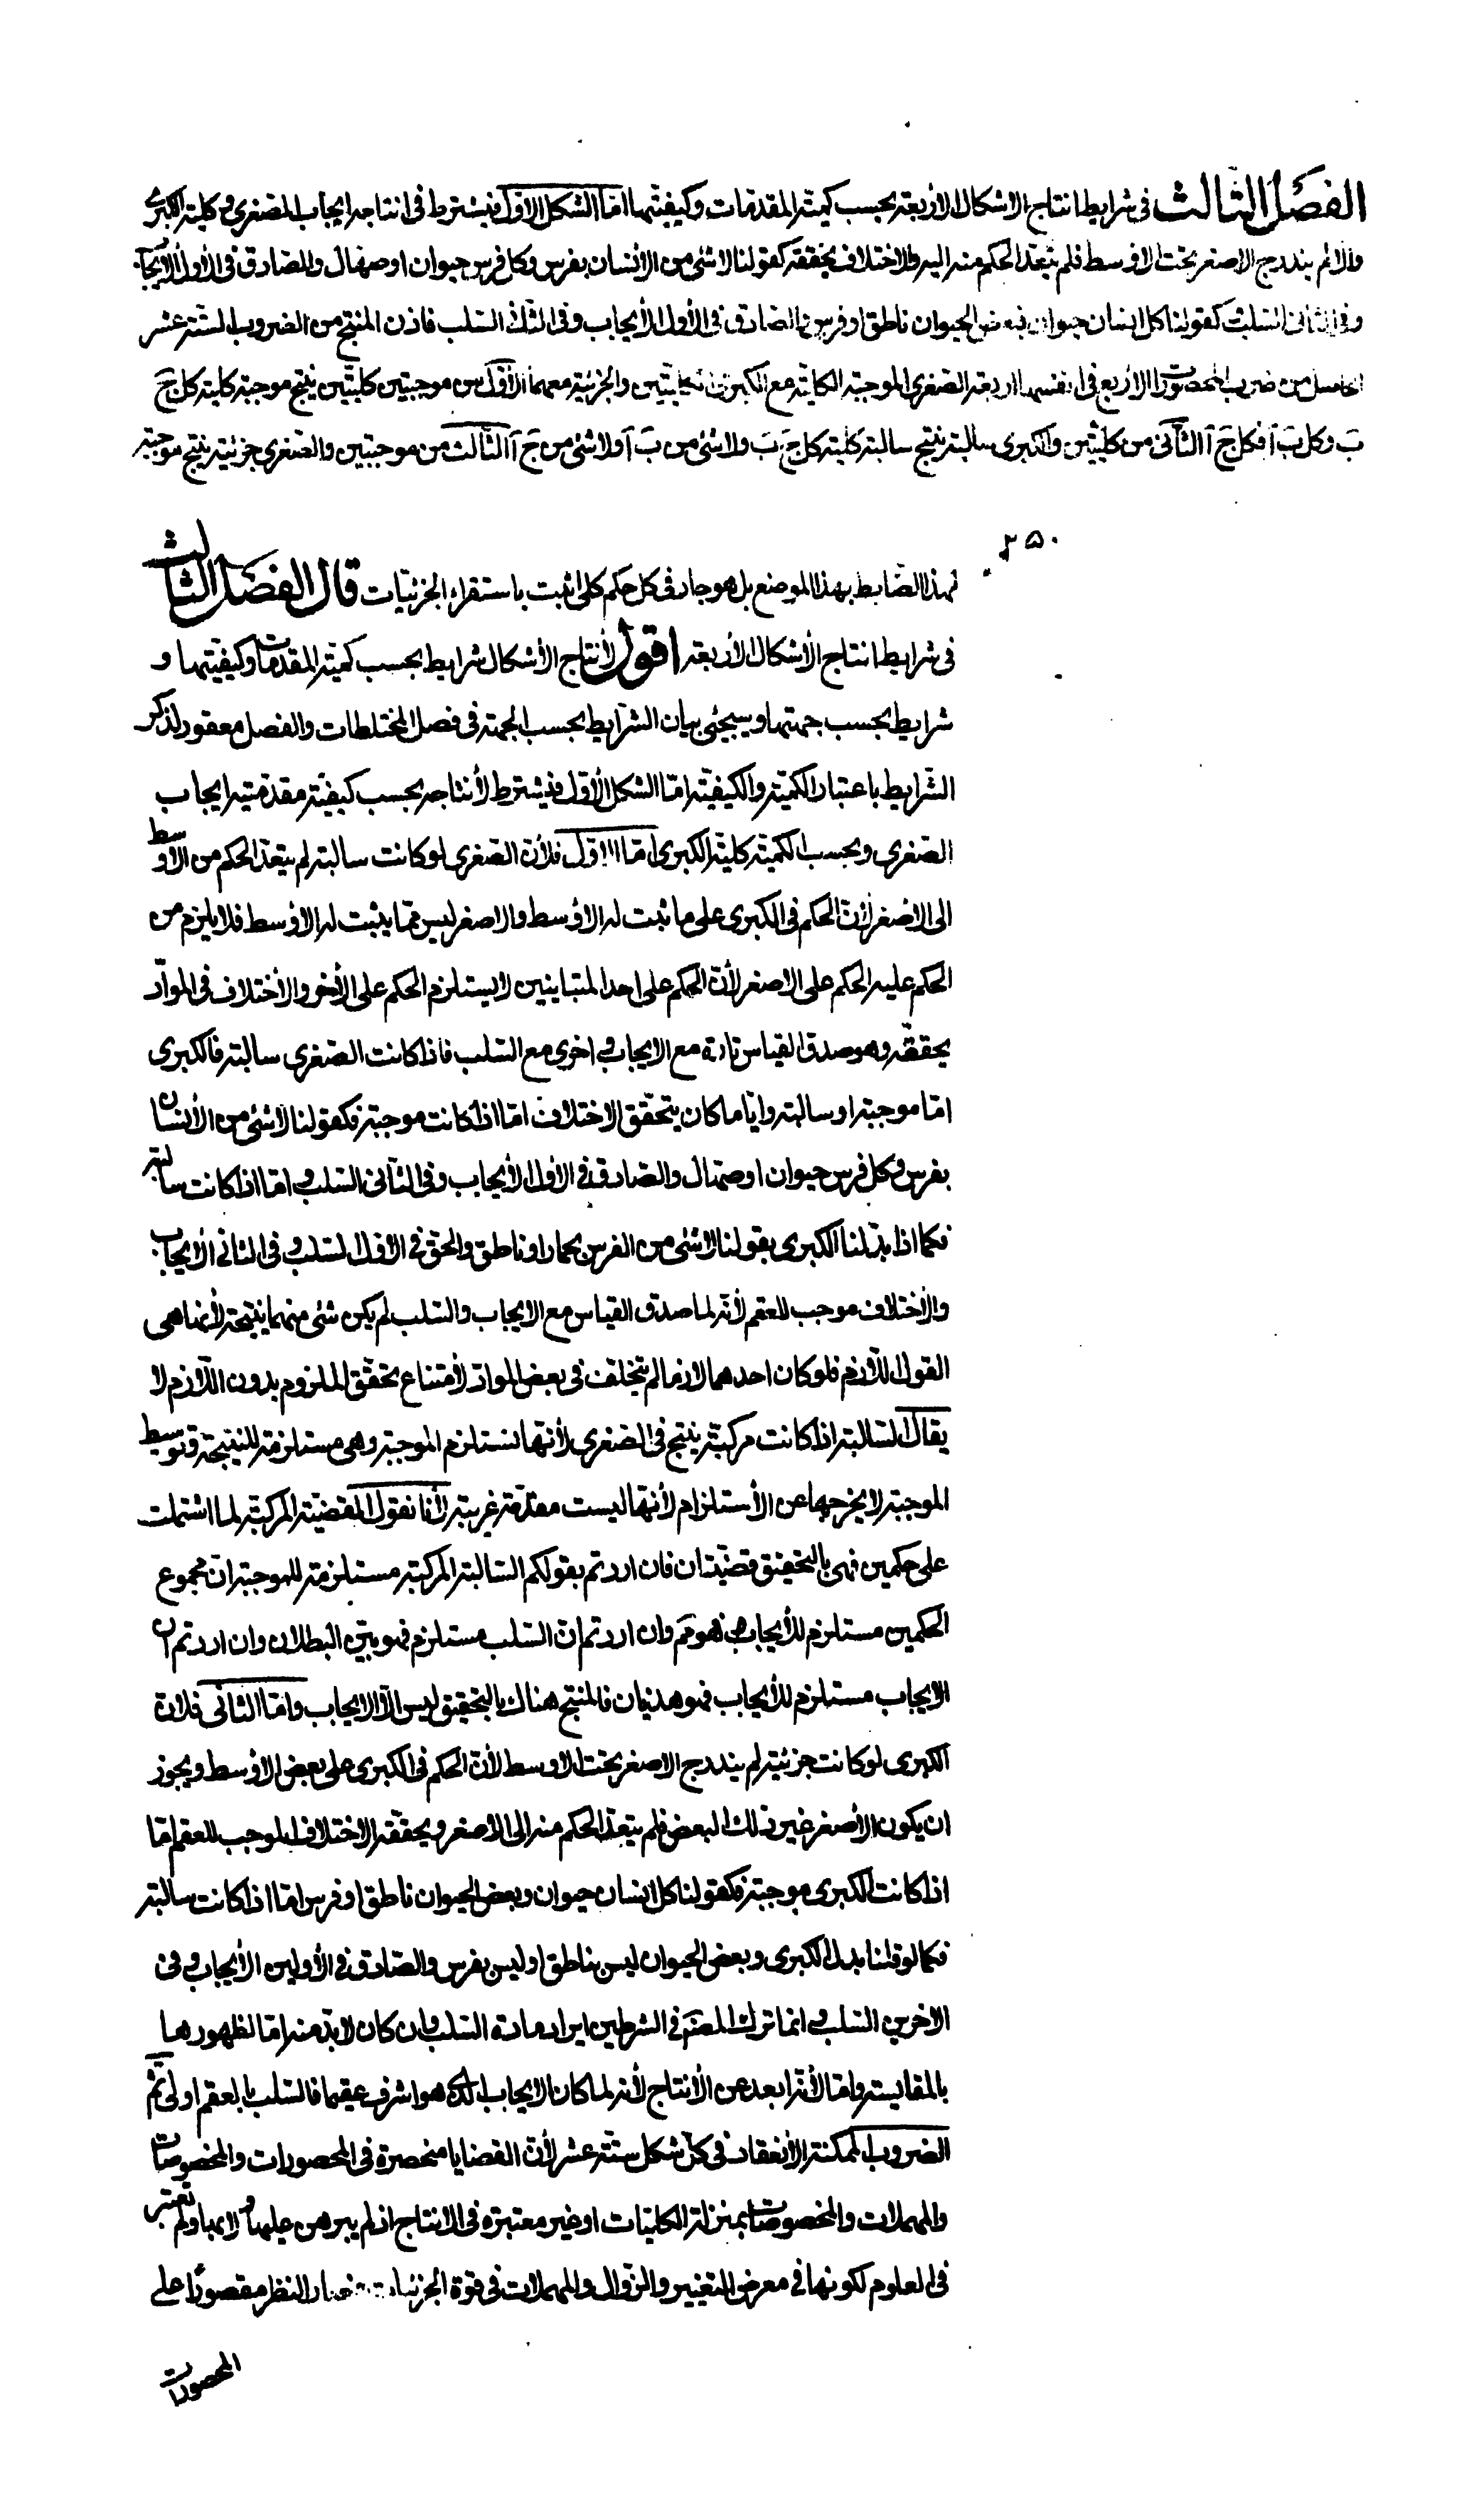 الفصل الثالث في شرايط انتاج الاشكال الاربعة بحسب كمية المقدمات وكيفيتها اما الشكل الاول فيشترط في انتاجه ايجاب الصغرى وكلية الكبرى
والا لم يندرج الاصغر تحت الاوسط فلم يتعد الحكم منه اليه والاختلاف يحققه كقولنا لا شئ من الانسان بفرس وكل فرس حيوان او صهال والصادق في الاول الايجاب
وفي الثاني السلب كقولنا كل انسان حيوان وبعض الحيوان ناطق او فرس والصادق في الاول الايجاب وفي الثاني السلب فاذن المنتج من الضروب الستة عشر
الحاصل من ضرب المحصورات الاربع في انفسها اربعة الصغرى الموجبة الكلية مع الكبريين الكليتين والجزئية معهما الاول من موجبتين كليتين ينتج موجبة كلية كل ج
ب وكل ب ا فكل ج ا الثاني من كليتين والكبرى سالبة ينتج سالبة كلية كل ج ب ولا شئ من ب ا ولا شئ من ج ا الثالث من موجبتين والصغرى جزئية ينتج موجبة
٢٥٠
لهذا الضابط بهذا الموضع بل هو جار في كل حكم كلي اثبت باستقراء الجزئيات قال الفصل الثالث
في شرايط انتاج الاشكال الاربعة اقول لانتاج الاشكال شرايط بحسب كمية المقدمات وكيفيتها و
شرايط بحسب جهتها وسيجئ بيان الشرايط بحسب الجهة في فصل المختلطات والفصل معقود لذكر
الشرايط باعتبار الكمية والكيفية اما الشكل الاول فيشترط لانتاجه بحسب كيفية مقدمتيه ايجاب
الصغرى وبحسب الكمية كلية الكبرى اما الاول فلان الصغرى لو كانت سالبة لم يتعد الحكم من الاوسط
الى الاصغر لان الحكم في الكبرى على ما ثبت له الاوسط والاصغر ليس مما يثبت له الاوسط فلا يلزم من
الحكم عليه الحكم على الاصغر لان الحكم على احد المتباينين لا يستلزم الحكم على الاخر والاختلاف في المواد
يحققه وهو صدق القياس تارة مع الايجاب واخرى مع السلب فاذا كانت الصغرى سالبة فالكبرى
اما موجبة او سالبة وايا ما كان يتحقق الاختلاف اما اذا كانت موجبة فكقولنا لا شئ من الانسان
بفرس وكل فرس حيوان او صهال والصادق في الاول الايجاب وفي الثاني السلب واما اذا كانت سالبة
فكما اذا بدلنا الكبرى بقولنا لا شئ من الفرس بحمار او ناطق والحق في الاول السلب وفي الثاني الايجاب
والاختلاف موجب للعقم لانه لما صدق القياس مع الايجاب والسلب لم يكن شئ منهما نتيجة لانها هي
القول اللازم فلو كان احدهما لازما لم يتخلف في بعض المواد لامتناع تحقق الملزوم بدون اللازم لا
يقال السالبة اذا كانت مركبة ينتج في الصغرى لانها تستلزم الموجبة وهي مستلزمة للنتيجة وتوسيط
الموجبة لا يخرجها عن الاستلزام لانها ليست مقدمة غريبة لانا نقول القضية المركبة لما اشتملت
على حكمين فهي بالتحقيق قضيتان فان اردتم بقولكم السالبة المركبة مستلزمة للموجبة ان مجموع
الحكمين مستلزم للايجاب فهو مم وان اردتم ان السلب مستلزم فهو بين البطلان وان اردتم ان
الايجاب مستلزم للايجاب فهو هذيان فالمنتج هناك بالتحقيق ليس الا الايجاب واما الثاني فلان
الكبرى لو كانت جزئية لم يندرج الاصغر تحت الاوسط لان الحكم في الكبرى على بعض الاوسط ويجوز
ان يكون الاصغر غير ذلك البعض فلم يتعد الحكم منه الى الاصغر ويحققه الاختلاف الموجب للعقم اما
اذا كانت الكبرى موجبة فكقولنا كل انسان حيوان وبعض الحيوان ناطق او فرس اما اذا كانت سالبة
فكما لو قلنا بدل الكبرى وبعض الحيوان ليس بناطق او ليس بفرس والصادق في الاولين الايجاب وفي
الاخرين السلب وانما ترك المصنف في الشرطين ايراد مادة السلب وان كان لابد منه اما لظهورها
بالمقايسة واما لانه ابعد عن الانتاج لانه لما كان الايجاب الذي هو اشرف عقيما فالسلب بالعقم اولى ثم
الضروب الممكنة الانعقاد في كل شكل ستة عشر لان القضايا منحصرة في المحصورات والمخصوصات
والمهملات والمخصوصات بمنزلة الكليات او غير معتبرة في الانتاج اذ لم يبرهن عليها ولا بها ولم تعتبر
في العلوم لكونها في معرض التغيير والزوال والمهملات في قوة الجزئيات فصار النظر مقصورا على
المحصورات